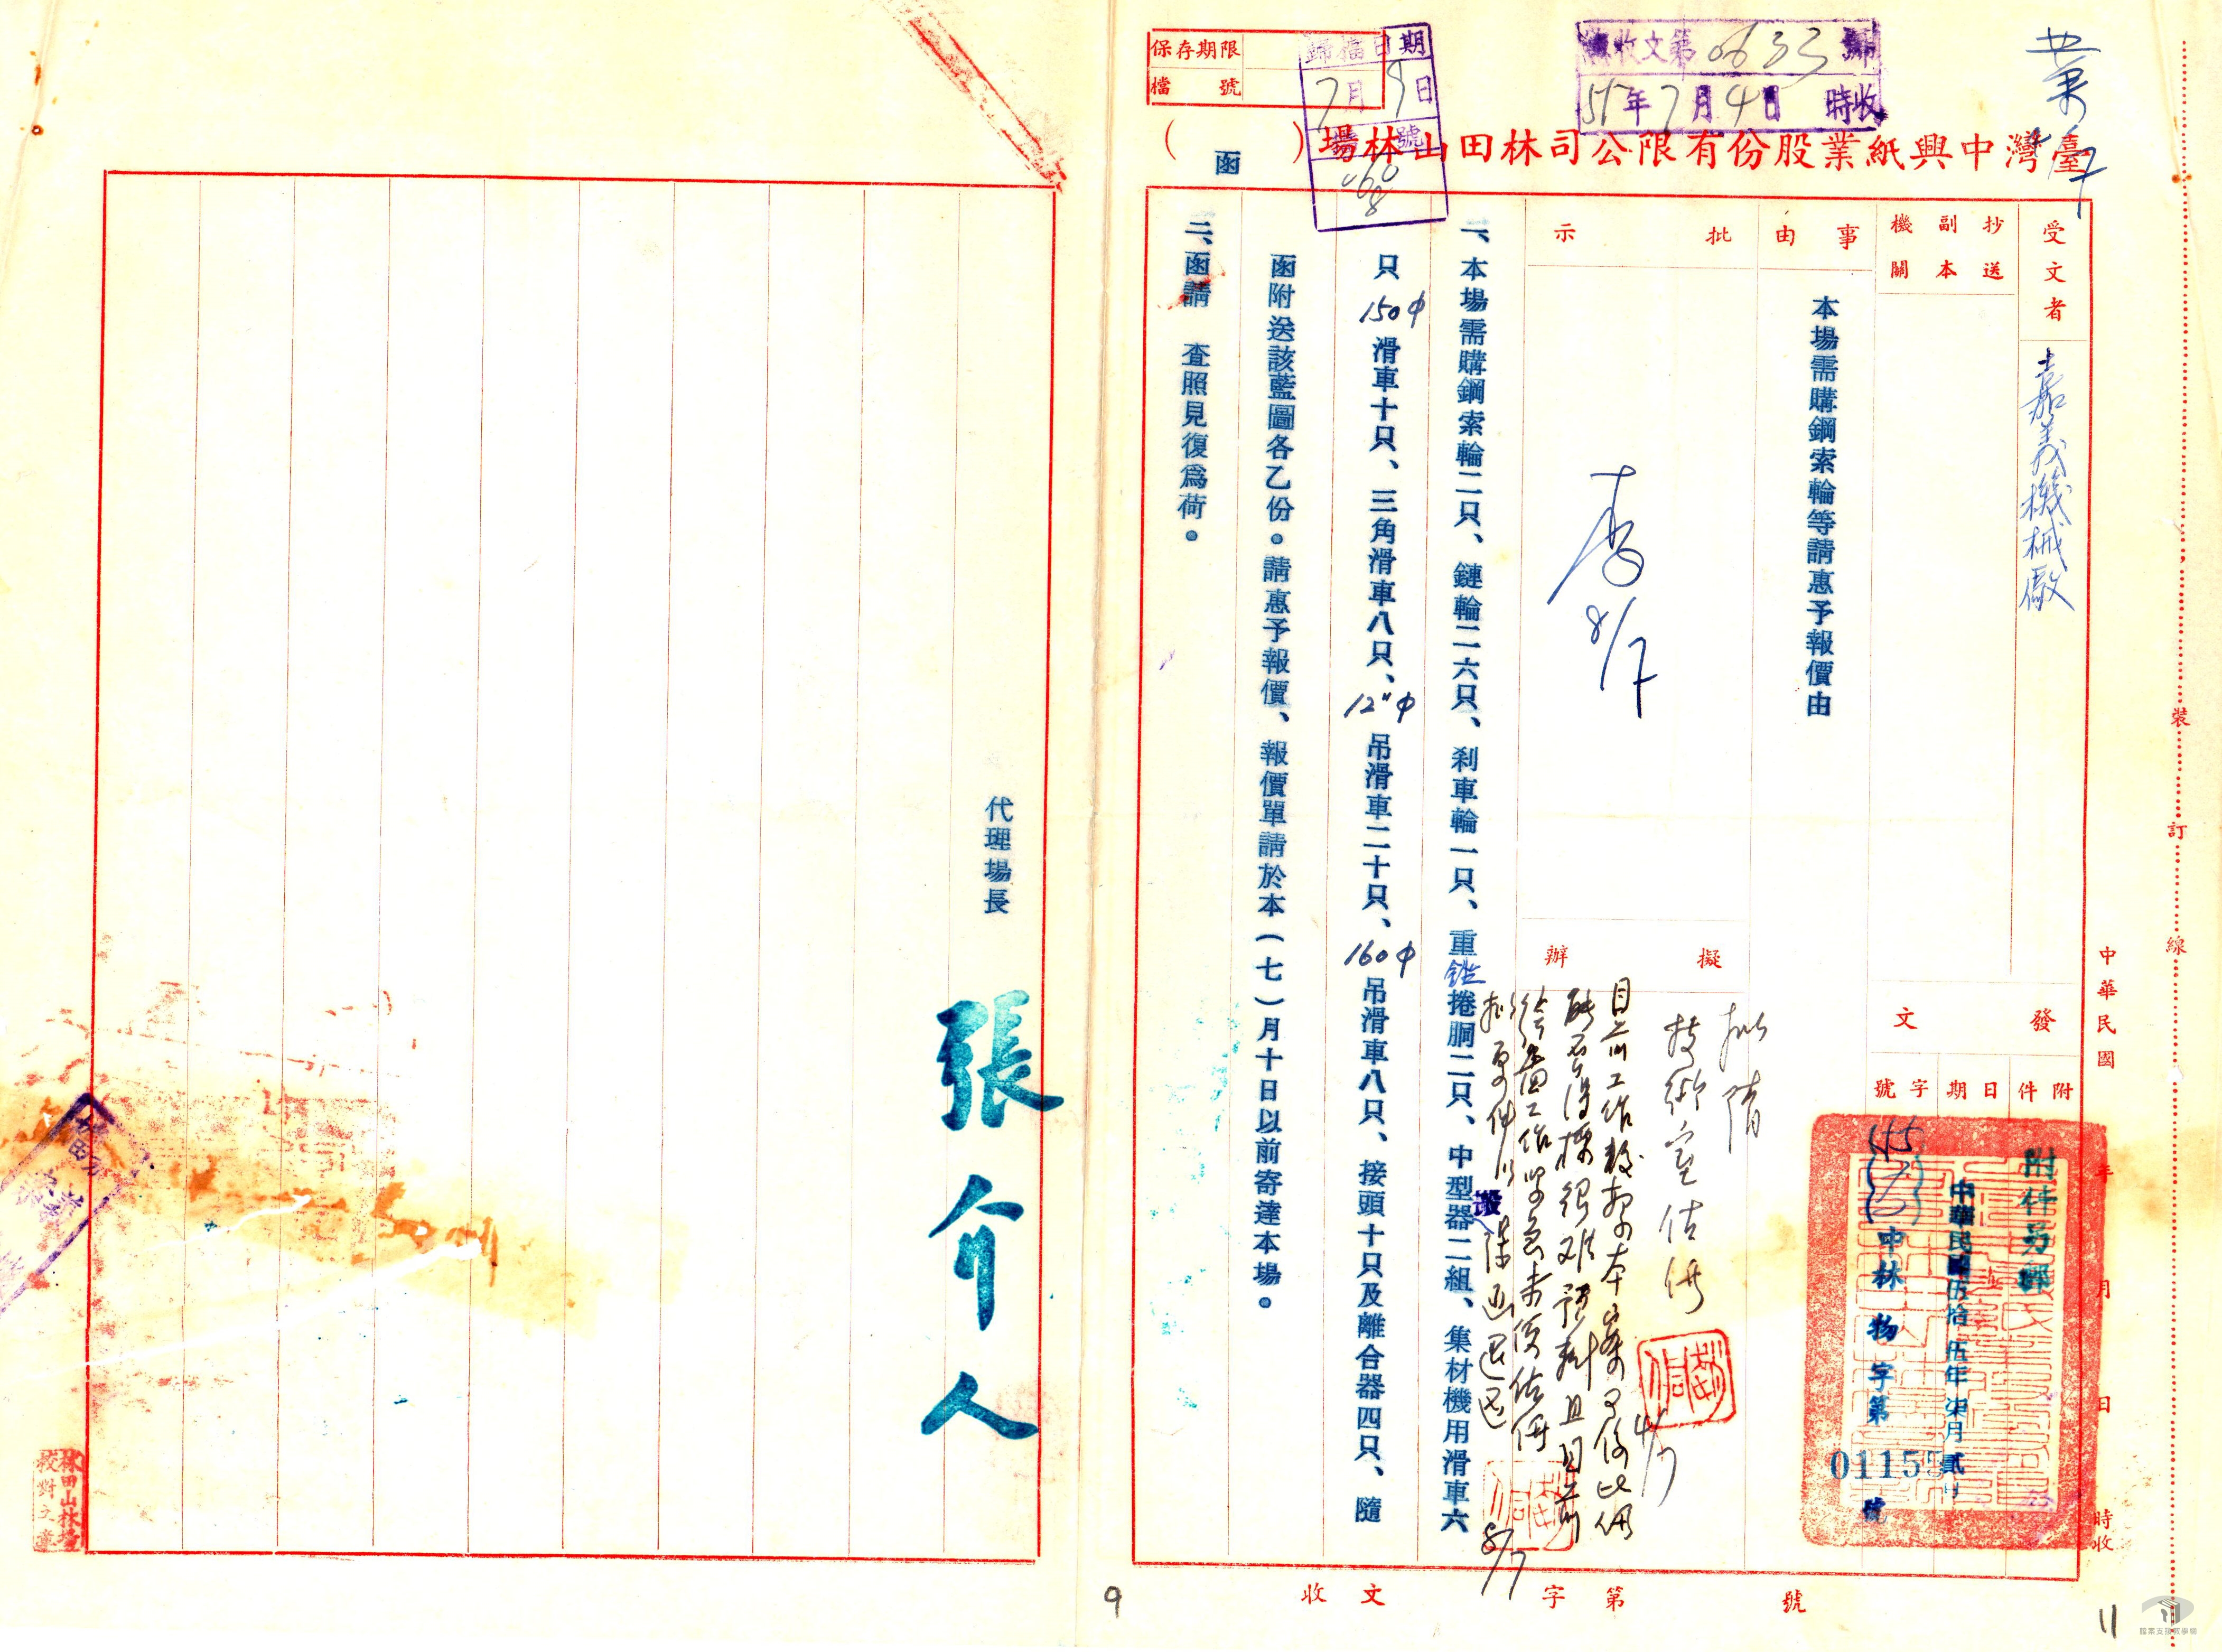 保存期限
檔號
歸檔日期
7月9日
號
收文第0633號
55年7月4日 時收
臺灣中興紙業股份有限公司林田山林場(函)
受文者
嘉義機械廠
抄送副本機關
事由
本場需購鋼索輪等請惠予報價由
批示
李 8/7
擬辦
擬請
技術室估價
4/7
發文
附件
附件另郵
日期
中華民國伍拾伍年柒月貳日
字號
(55)
中林物字第01155號
中華民國 年 月 日 時收
一、本場需購鋼索輪二只、鏈輪二六只、剎車輪一只、重鎚捲胴二只、中型器二組、集材機用滑車六
只150φ滑車十只、三角滑車八只、12"φ吊滑車二十只、160φ吊滑車八只、接頭十只及離合器四只、隨
函附送該藍圖各乙份。請惠予報價、報價單請於本(七)月十日以前寄達本場。
二、函請 查照見復為荷。
8/7
代理場長
張介人
林田山林場
校對之章
收文 字第 號
裝訂線
9
11
檔案支援教學網